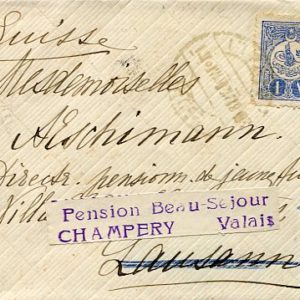 Suisse
Mesdemoiselles
Aeschimann.
Directr. pensionn. de jeunes
Villa
Pension Beau-Séjour
CHAMPERY Valais
Lausanne
1